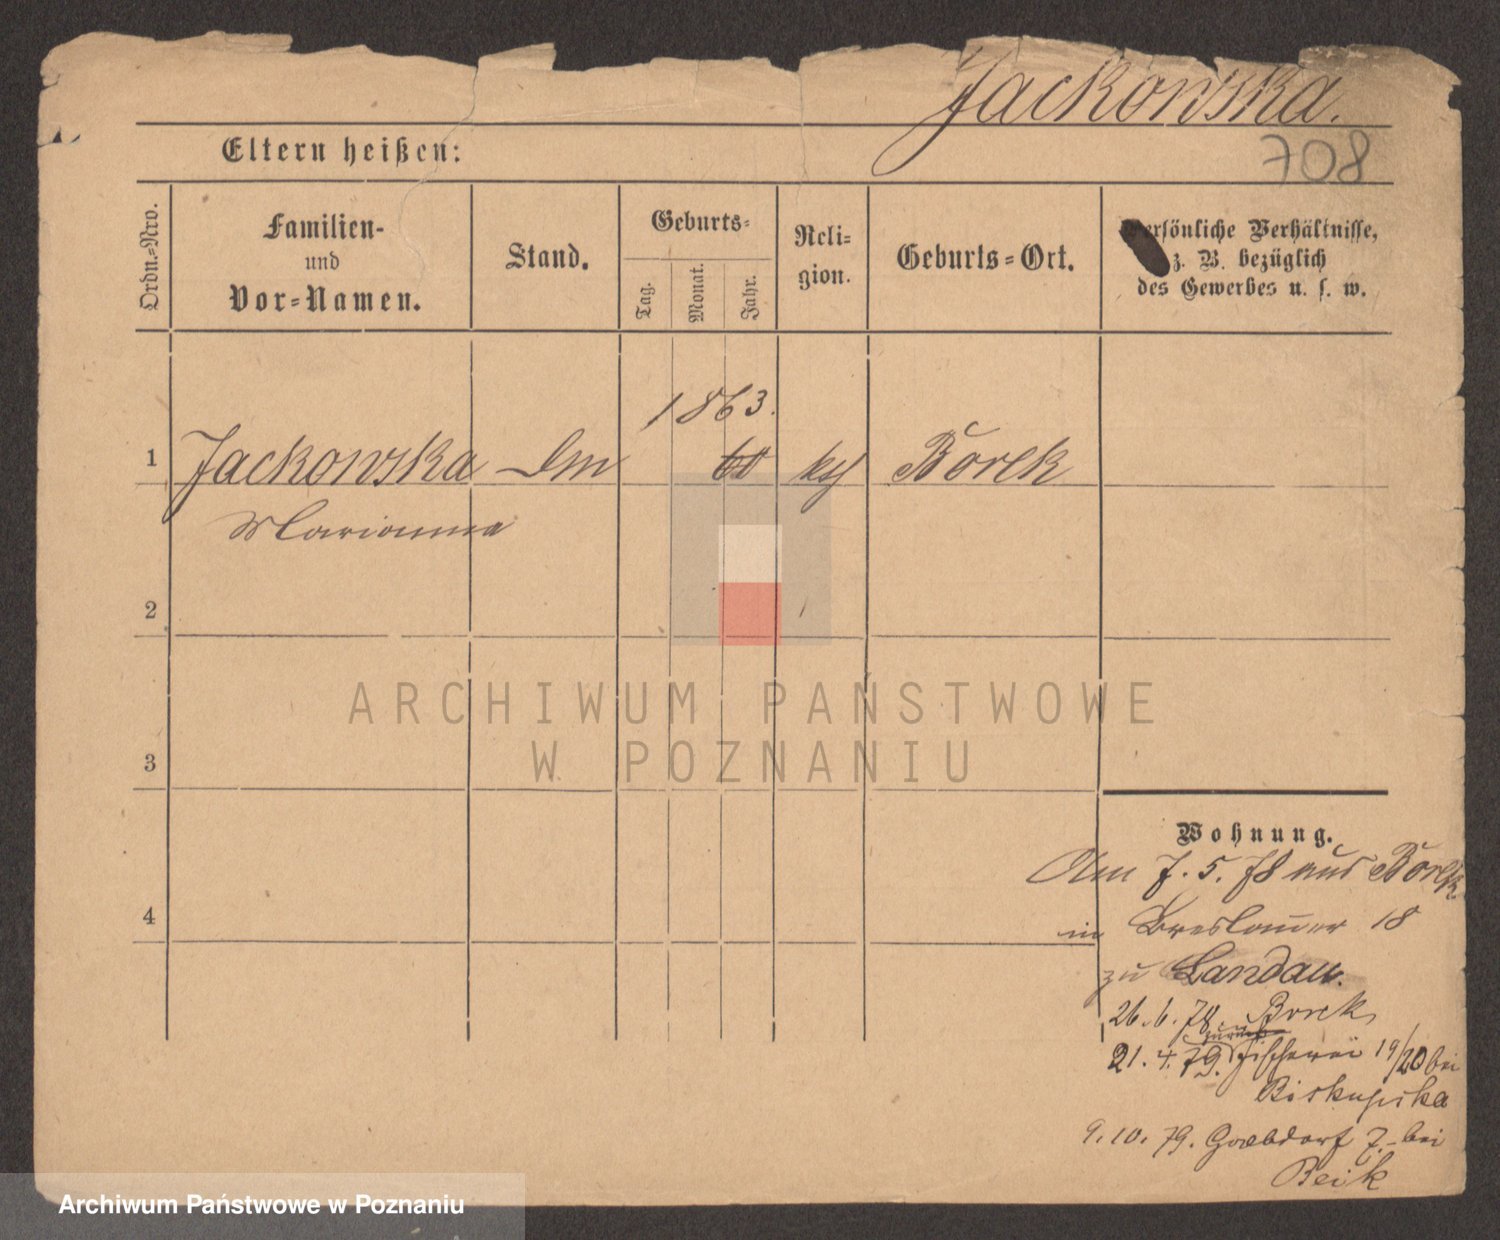 Jackowska.
708
Eltern heißen:
Ordn.-Nro.
Familien-
und
Vor-Namen.
Stand.
Geburts-
Tag.
Monat.
Jahr.
Reli-
gion.
Geburts-Ort.
Persönliche Verhältnisse,
z. B. bezüglich
des Gewerbes u. s. w.
1863.
1 Jackowska 60 Borek
Marianna
2
3
4
ARCHIWUM PAŃSTWOWE
W POZNANIU
Wohnung.
7. 5. 78 aus Borek
in Breslauer 18
zu Landau.
26. 6. 78. Borek
zurück
21. 4. 79. Fischerei 19/20 bei
Biskupska
9. 10. 79. 7. bei
Archiwum Państwowe w Poznaniu